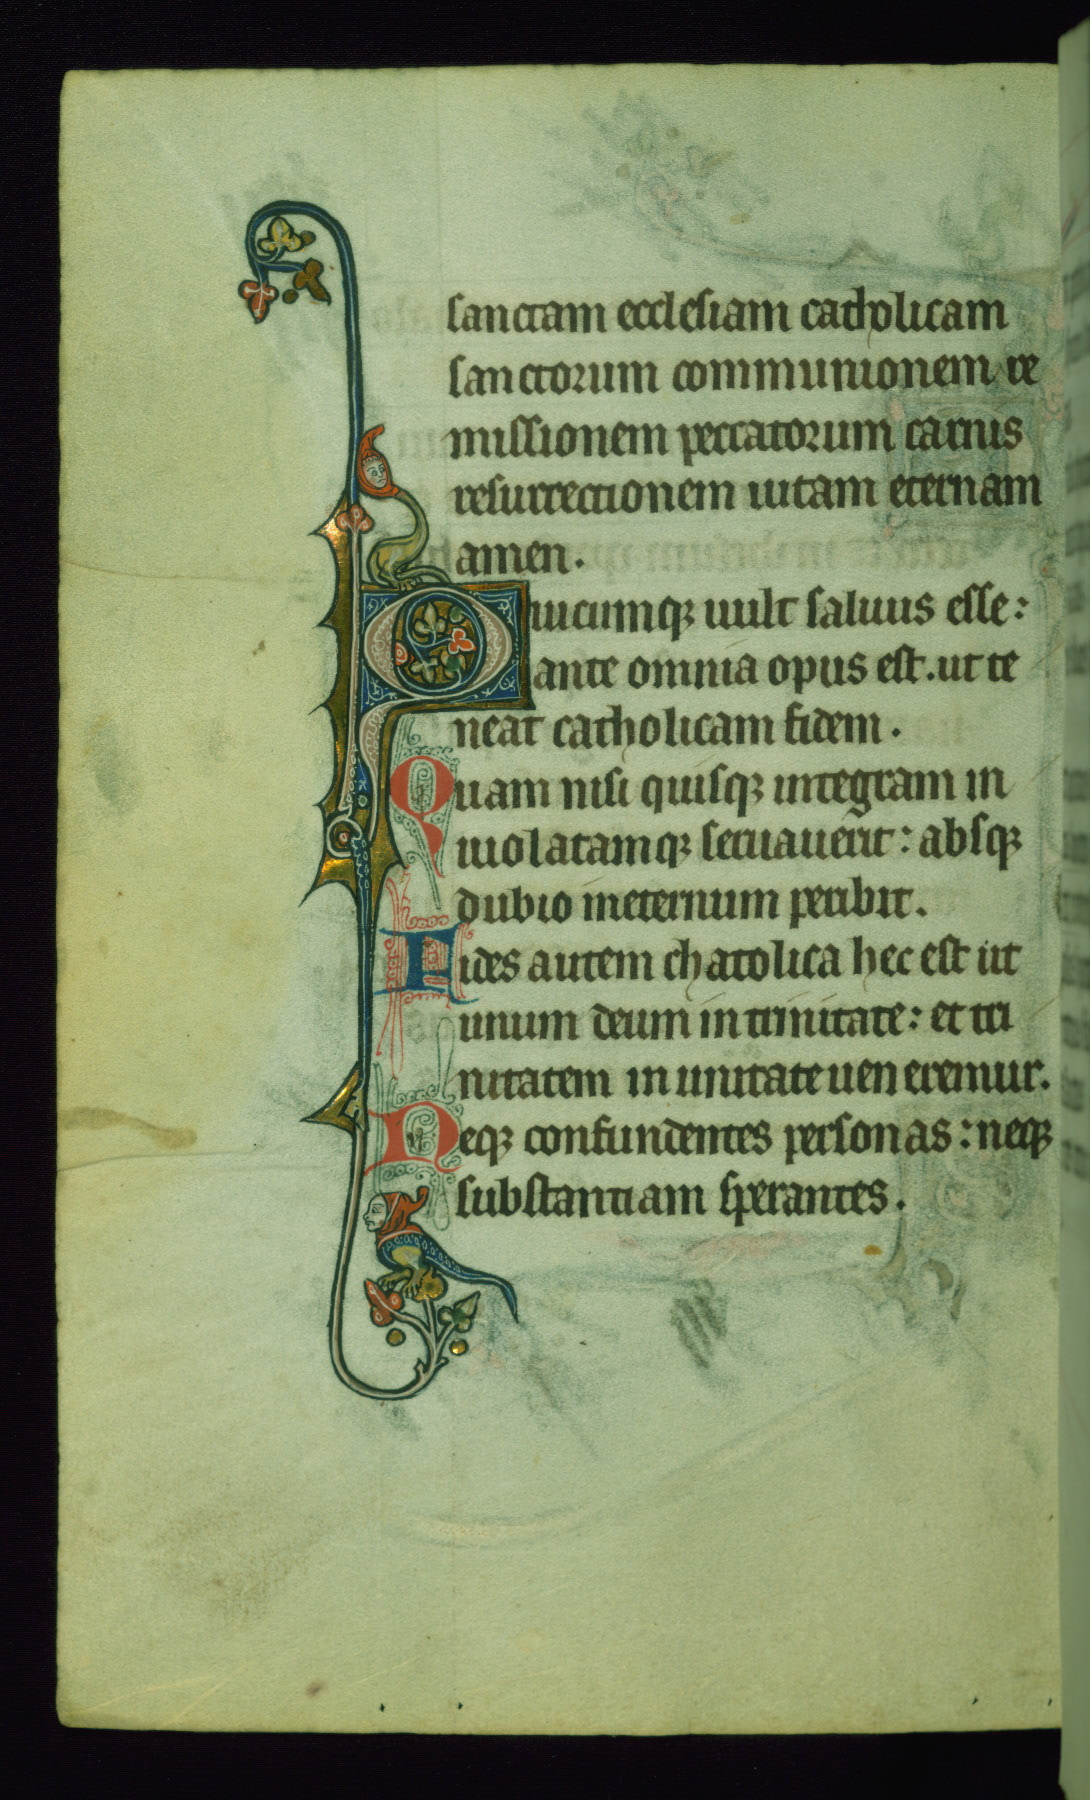 sanctam ecclesiam catholicam
sanctorum communionem re
missionem peccatorum carnis
resurrectionem uitam eternam
amen.
Quicumqꝫ uult saluus esse:
ante omnia opus est. ut te
neat catholicam fidem.
Quam nisi quisqꝫ integram in
uiolatamqꝫ seruauerit: absqꝫ
dubio ineternum peribit.
Fides autem chatolica hec est ut
unum deum in trinitate: et tri
nitatem in unitate ueneremur.
Neqꝫ confundentes personas: neqꝫ
substantiam sperantes.